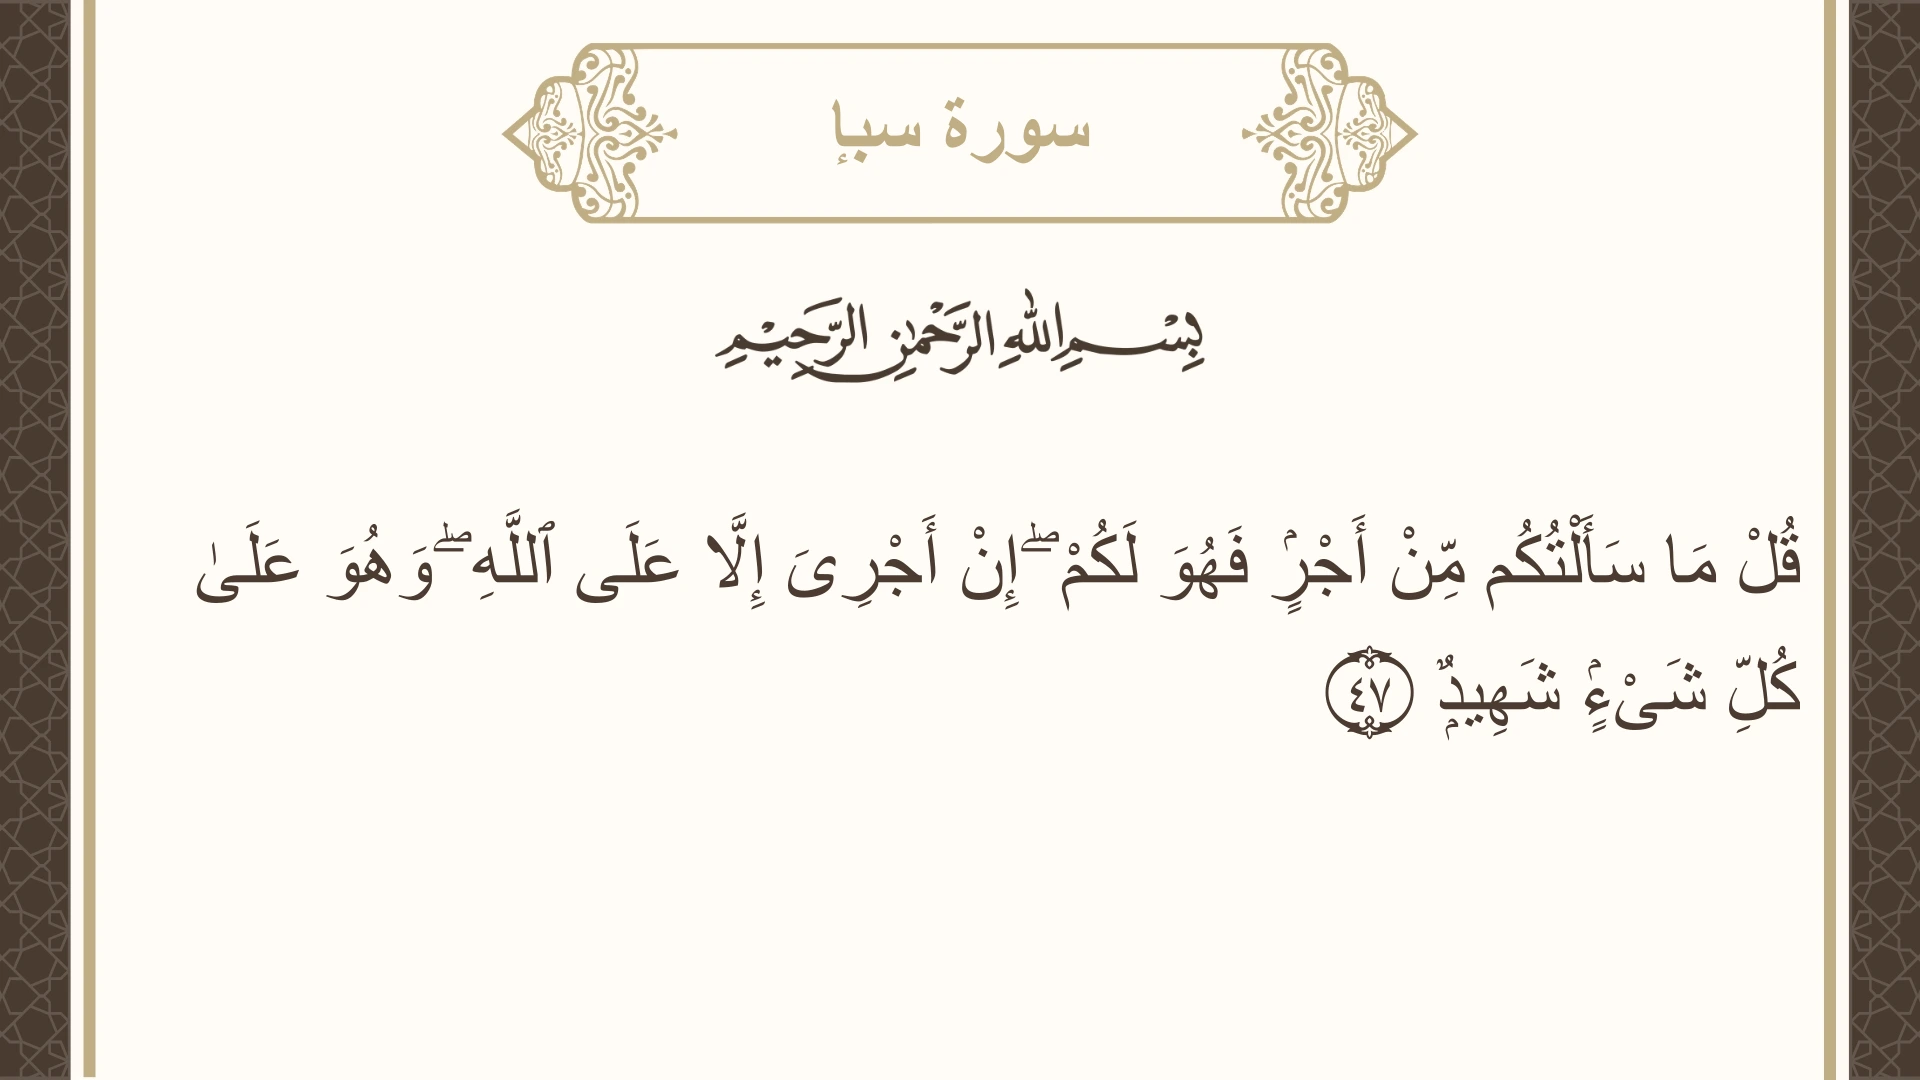 سورة سبإ
بِسْمِ اللهِ الرَّحْمٰنِ الرَّحِيْمِ
قُلْ مَا سَأَلْتُكُم مِّنْ أَجْرٍۢ فَهُوَ لَكُمْ ۖ إِنْ أَجْرِىَ إِلَّا عَلَى ٱللَّهِ ۖ وَهُوَ عَلَىٰ
كُلِّ شَىْءٍۢ شَهِيدٌۭ ٤٧